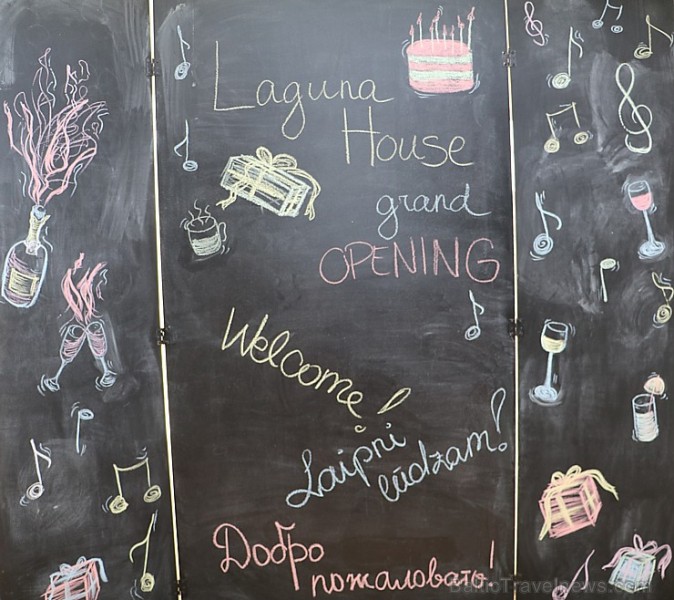 Laguna
House
grand
OPENING
Welcome!
Laipni
lūdzam!
Добро
пожаловать!
BalticTravelnews.com